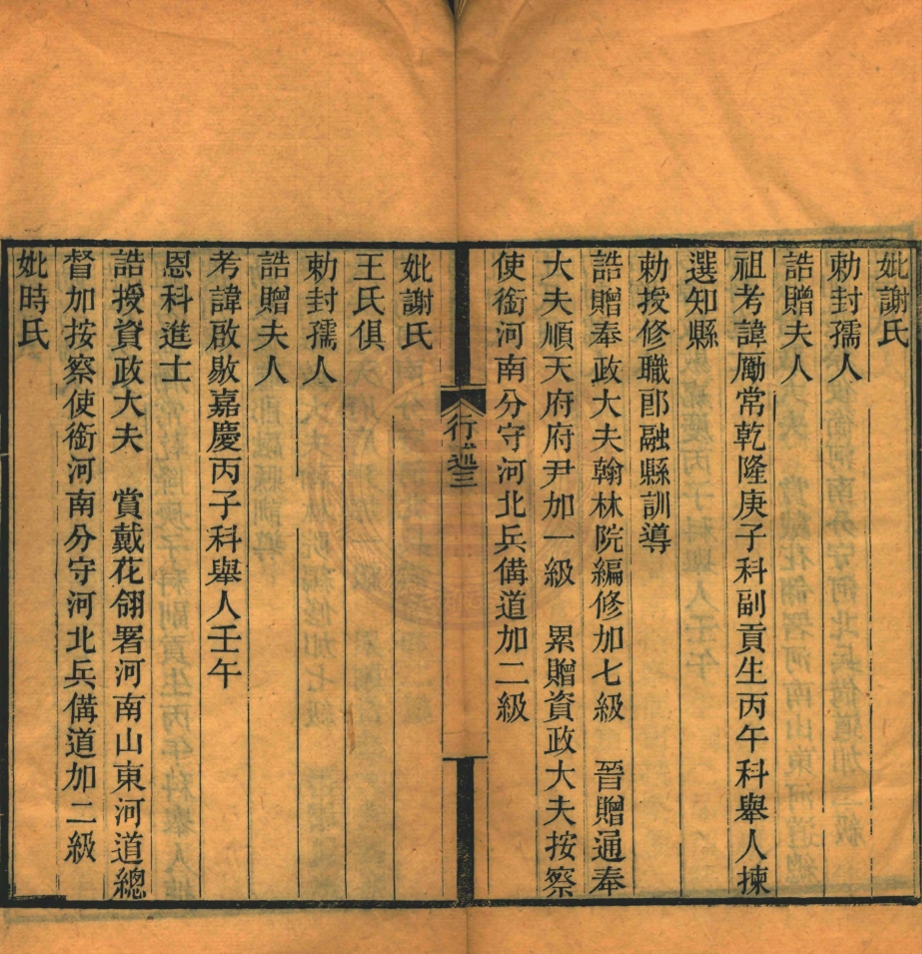 妣謝氏
勅封孺人
誥贈夫人
祖考諱厲常乾隆庚子科副貢生丙午科舉人揀
選知縣
勅授修職郎融縣訓導
誥贈奉政大夫翰林院編修加七級　晉贈通奉
大夫順天府府尹加一級　累贈資政大夫按察
使銜河南分守河北兵備道加二級
行述三
妣謝氏
王氏俱
勅封孺人
誥贈夫人
考諱啟歇嘉慶丙子科舉人壬午
恩科進士
誥授資政大夫　賞戴花翎署河南山東河道總
督加按察使銜河南分守河北兵備道加二級
妣時氏